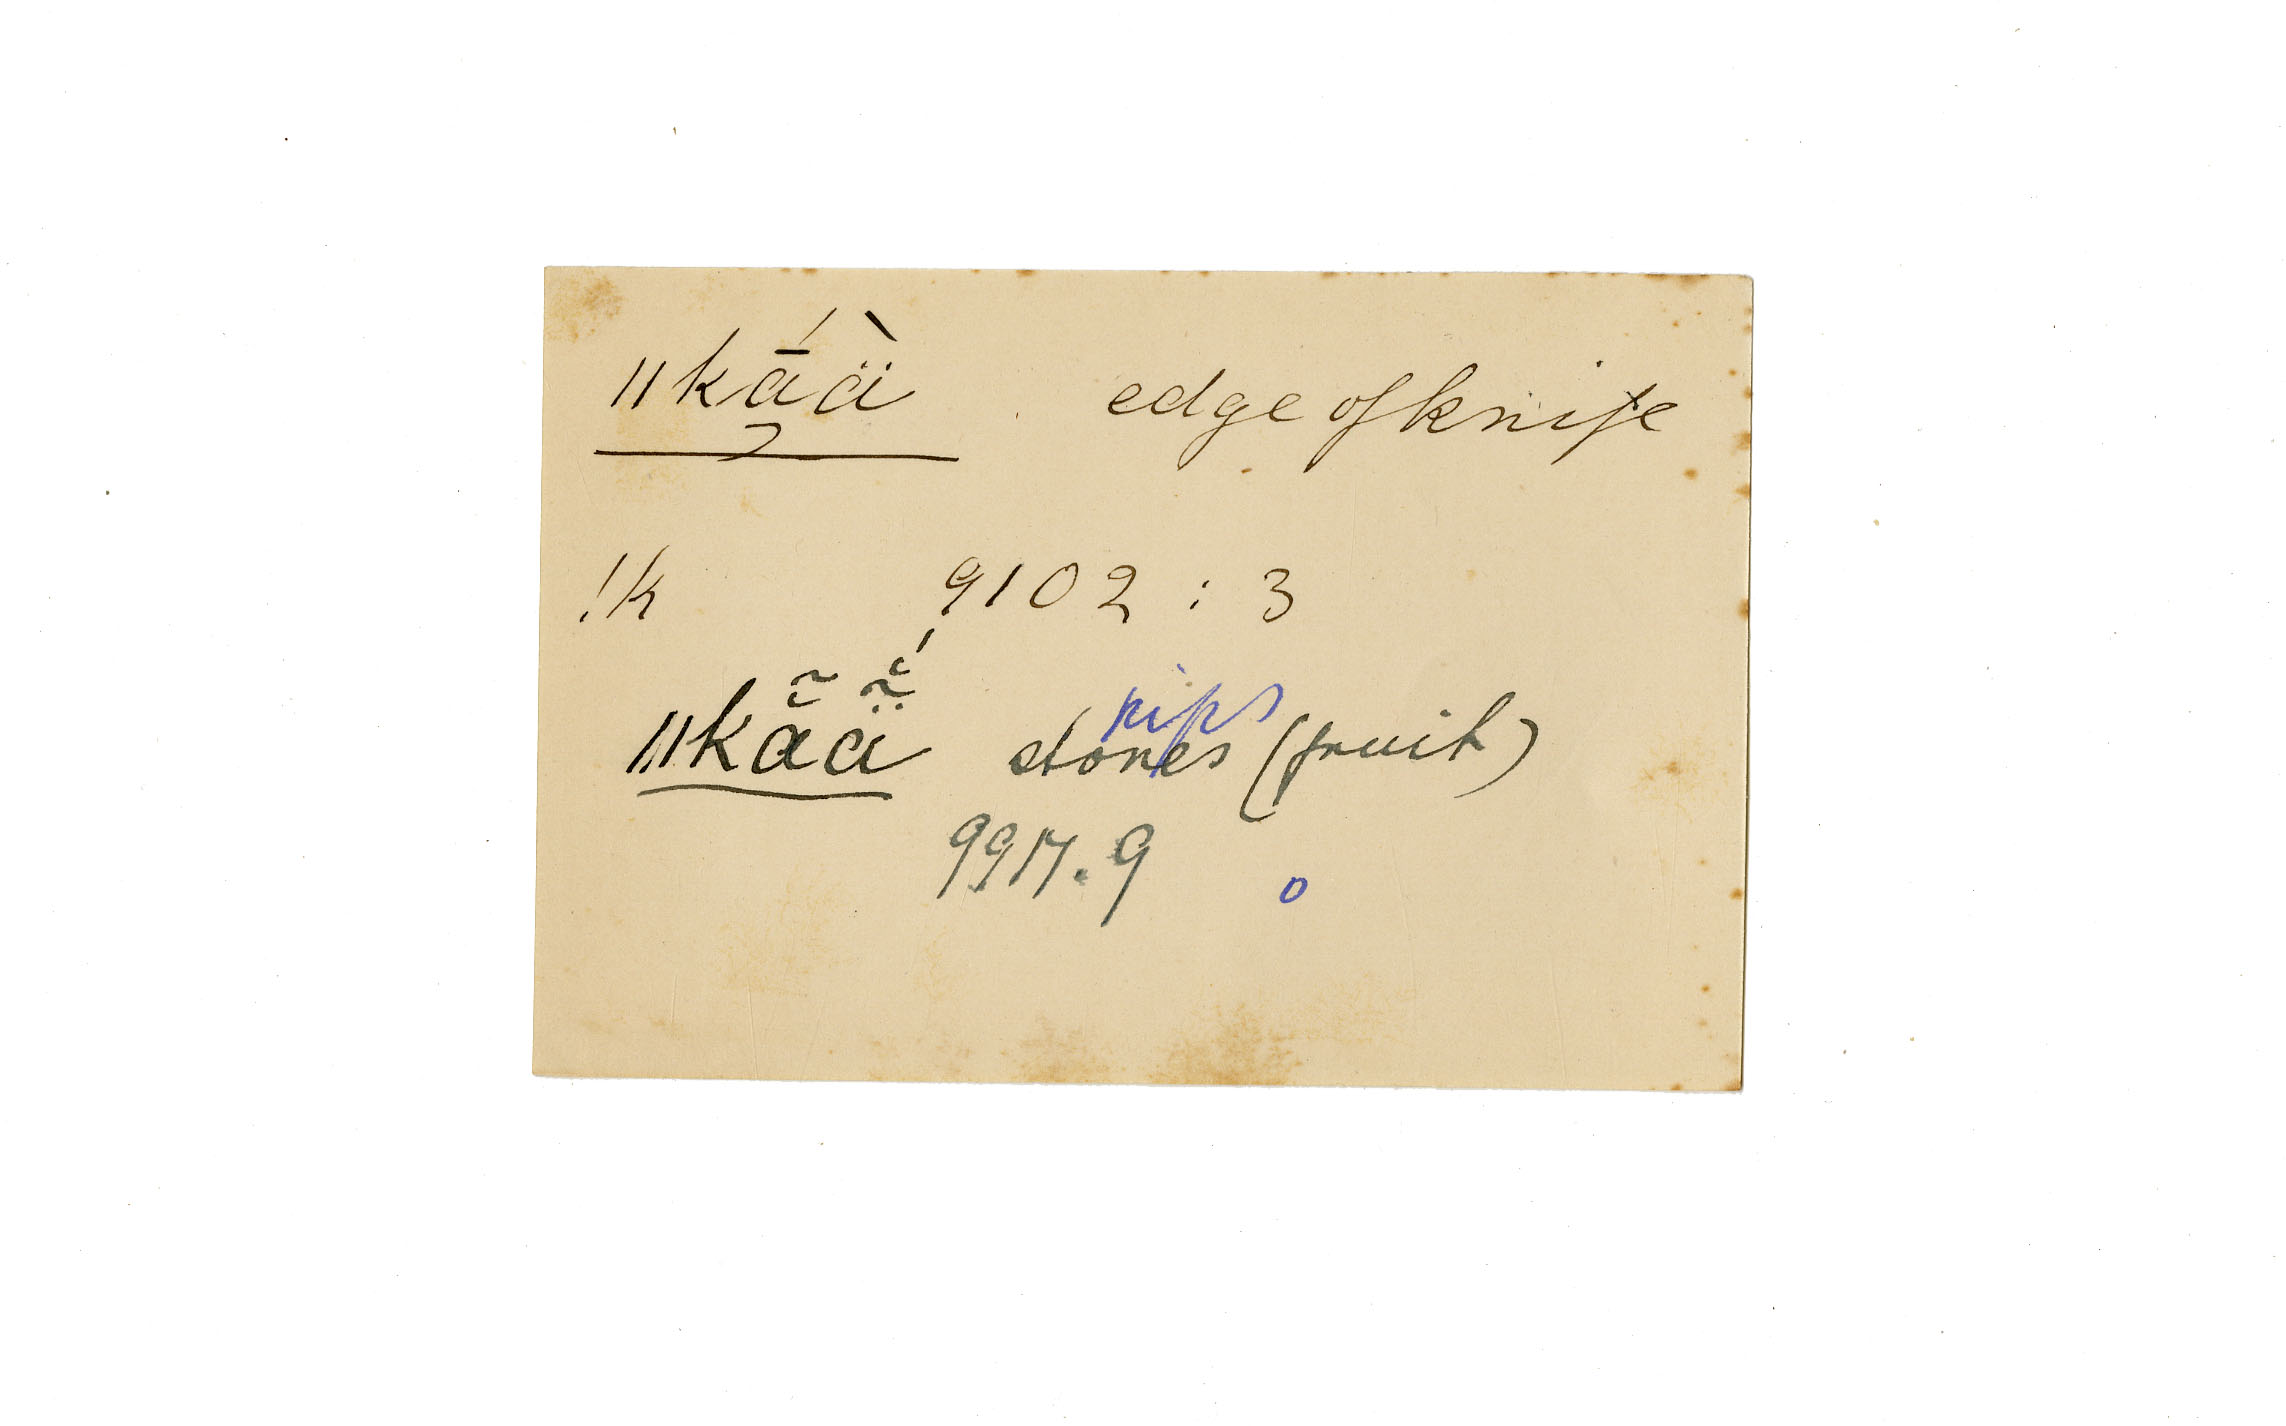 ǁkā́ä̀ edge of knife
!k 9102 : 3
pips
ǁkã̆ä̃̆́ stones (fruit)
9917.9 o